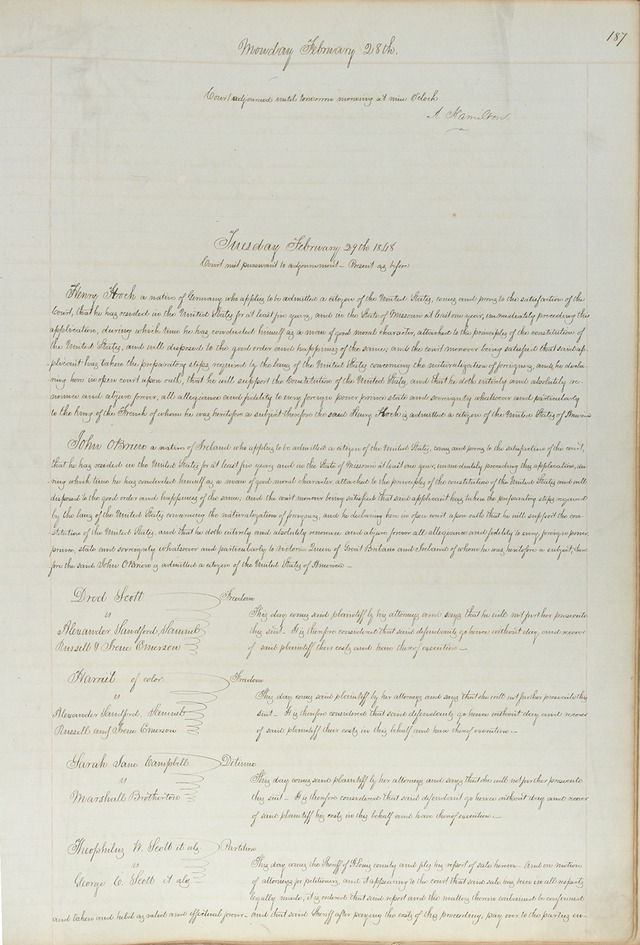 187
Monday February 28th.
Court adjourned until tomorrow morning at nine O'clock
A Hamilton
Tuesday February 29th 1848
Court met pursuant to adjournment – Present as before
Henry Hock a native of Germany who applies to be admitted a citizen of the United States, comes and proves to the satisfaction of the
Court, that he has resided in the United States for at least five years, and in the State of Missouri at least one year, immediately preceding this
application, during which time he has conducted himself as a man of good moral character, attached to the principles of the constitution of
the United States, and well disposed to the good order and happiness of the same; and the court moreover being satisfied that said ap-
plicant has taken the preparatory steps required by the laws of the United States concerning the naturalization of foreigners, and he decla-
ring here in open court upon oath, that he will support the Constitution of the United States, and that he doth entirely and absolutely re-
nounce and abjure forever, all allegiance and fidelity to every foreign power prince state and sovereignty whatever and particularly
to the king of the French of whom he was heretofore a subject therefore the said Henry Hock is admitted a citizen of the United States of America
John O'Brien a native of Ireland who applies to be admitted a citizen of the United States, comes and proves to the satisfaction of the court,
that he has resided in the United States for at least five years and in the State of Missouri at least one year, immediately preceding this application, du-
ring which time he has conducted himself as a man of good moral character, attached to the principles of the constitution of the United States and well
disposed to the good order and happiness of the same; and the court moreover being satisfied that said applicant has taken the preparatory steps required
by the laws of the United States concerning the naturalization of foreigners, and he declaring here in open court upon oath that he will support the con-
stitution of the United States, and that he doth entirely and absolutely renounce and abjure forever all allegiance and fidelity to every foreign power
prince, state and sovereignty whatever and particularly to Victoria Queen of Great Britain and Ireland of whom he was heretofore a subject, there-
fore the said John O'Brien is admitted a citizen of the United States of America –
Dred Scott
vs
Alexander Sandford, Samuel
Russell & Irene Emerson
Freedom
This day comes said plaintiff by his attorney and says that he will not further prosecute
this suit – It is therefore considered that said defendants go hence without day and recover
of said plaintiff their costs and have thereof execution –
Harriet of color
vs
Alexander Sandford, Samuel
Russell and Irene Emerson
Freedom
This day comes said plaintiff by her attorney and says that she will not further prosecute this
suit – It is therefore considered that said defendants go hence without day and recover
of said plaintiff their costs in this behalf and have thereof execution –
Sarah Jane Campbell
vs
Marshall Brotherton
Detinue
This day comes said plaintiff by her attorney and says that she will not further prosecute
this suit – It is therefore considered that said defendant go hence without day and recover
of said plaintiff his costs in this behalf and have thereof execution –
Theophilus W. Scott et als
vs
George C. Scott et als
Partition
This day comes the Sheriff of St Louis county and files his report of sale herein. And on motion
of attorneys for petitioners, and it appearing to the court that said sale has been in all respects
legally made, it is ordered that said report and the matters therein contained be confirmed
and taken and held as valid and effectual forever – and that said Sheriff after paying the costs of this proceeding, pay over to the parties en-